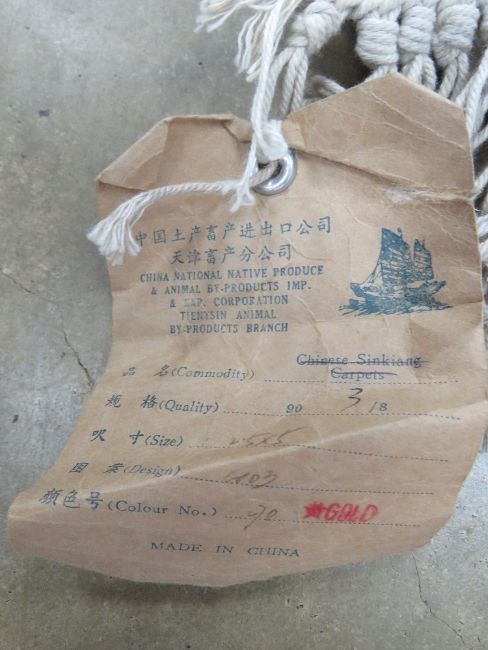 中国土产畜产进出口公司
天津畜产分公司
CHINA NATIONAL NATIVE PRODUCE
& ANIMAL BY-PRODUCTS IMP.
& EXP. CORPORATION
TIENTSIN ANIMAL
BY-PRODUCTS BRANCH
品 名(Commodity) Chinese Sinkiang
Carpets
规 格(Quality) 90 3/8
呎 寸(Size)
图 案(Design) 403
颜色号(Colour No.) 70 GOLD
MADE IN CHINA